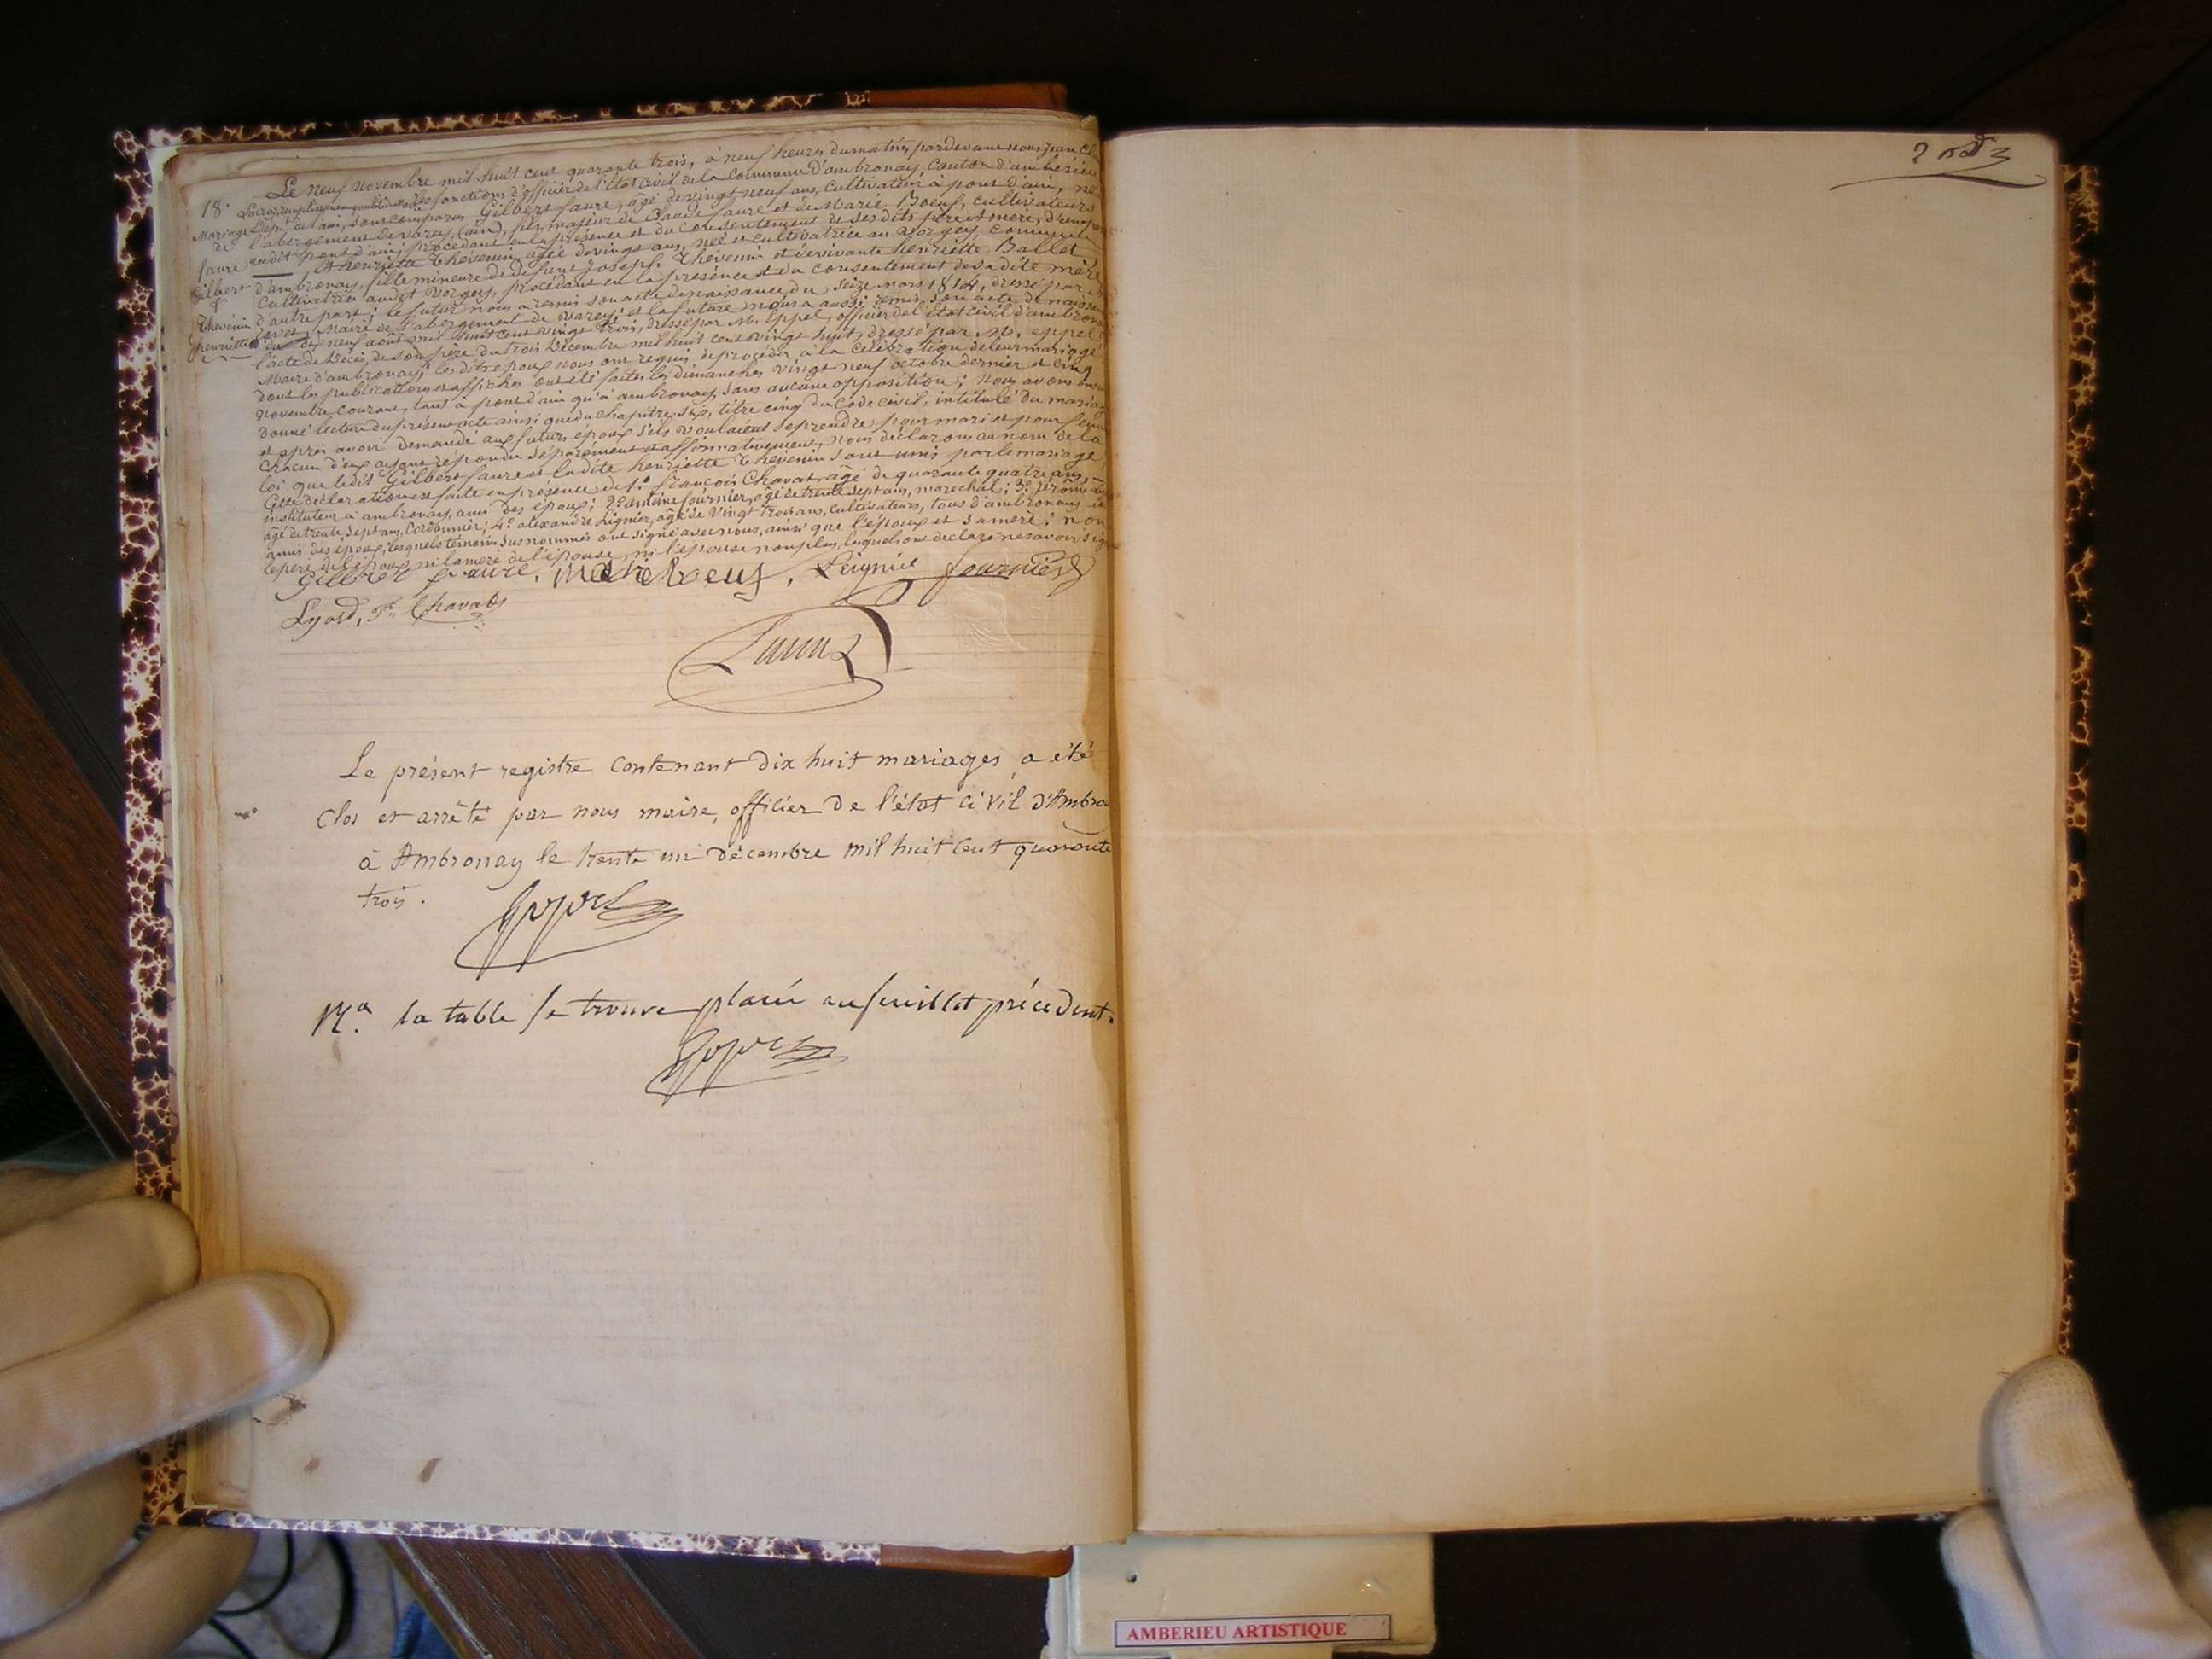 Le neuf novembre mil huit cent quarante trois, à neuf heures du matin, pardevant nous Jean Cl
fonctions d'officier de l'état civil de la commune d'ambronay, canton d'amberieu
18.e
Mariage
de
faure
Gilbert
&
Thevenin
henriette
Dépt. de l'ain, sont comparus Gilbert faure, âgé de vingt neuf ans, cultivateur à pont d'ain, né
l'abergement de varey (ain), fils majeur de Claude faure et de Marie Boeuf, cultivateurs
audit pont d'ain; procédant en la présence et du consentement de ses dits père & mère, d'une part
& henriette Thevenin, âgée de vingt ans, née et cultivatrice au Vorgey, commune
d'ambronay, fille mineure de défunt Joseph Thevenin et de vivante henriette Ballet
cultivatrice audit Vorgey, procédant en la présence et du consentement de sa dite mère
d'autre part; le futur nous a remis son acte de naissance du seize mars 1814, dressé par M.
maire de l'abergement de Varey; et la future nous a aussi remis son acte de naissan
du dix neuf août mil huit cent vingt trois, dressé par M. Eppel, officier de l'état civil d'ambronay
l'acte de décès de son père du trois décembre mil huit cent vingt huit, dressé par M. eppel
Maire d'ambronay; les dits époux nous ont requis de procéder à la célébration de leur mariage
dont les publications et affiches ont été faites les dimanches vingt neuf octobre dernier et cinq
novembre courant, tant à pont d'ain qu'à ambronay, sans aucune opposition; nous avons ensu
donné lecture du présent acte ainsi que du chapitre six, titre cinq du code civil, intitulé du mariage
et après avoir demandé aux futurs époux s'ils voulaient se prendre pour mari et pour femme
chacun d'eux ayant répondu séparément & affirmativement, nous déclarons au nom de la
loi que ledit Gilbert faure et ladite henriette Thevenin sont unis par le mariage,
Cette déclaration est faite en présence de 1.° françois Chavat, âgé de quarante quatre ans,
instituteur à ambronay, ami des époux; 2.° antoine fournier, âgé de trente sept ans, maréchal; 3.° jérôme
âgé de trente sept ans, Cordonnier; 4.° alexandre Leignier, âgé de vingt trois ans, cultivateurs, tous d'ambronay et
amis des époux, lesquels témoins susnommés ont signé avec nous, ainsi que l'époux et sa mère; non
le père de l'époux, ni la mère de l'épouse, ni l'épouse non plus, lesquels ont déclaré ne savoir sig
gilbert faure. marie boeuf. Leignié fournier
Lyard, Fs. Chavat
Le présent registre contenant dix huit mariages a été
clos et arrêté par nous maire, officier de l'état civil d'Ambro
à Ambronay le trente un décembre mil huit cent quarante
trois.
N.a la table se trouve placée au feuillet précédent.
AMBERIEU ARTISTIQUE